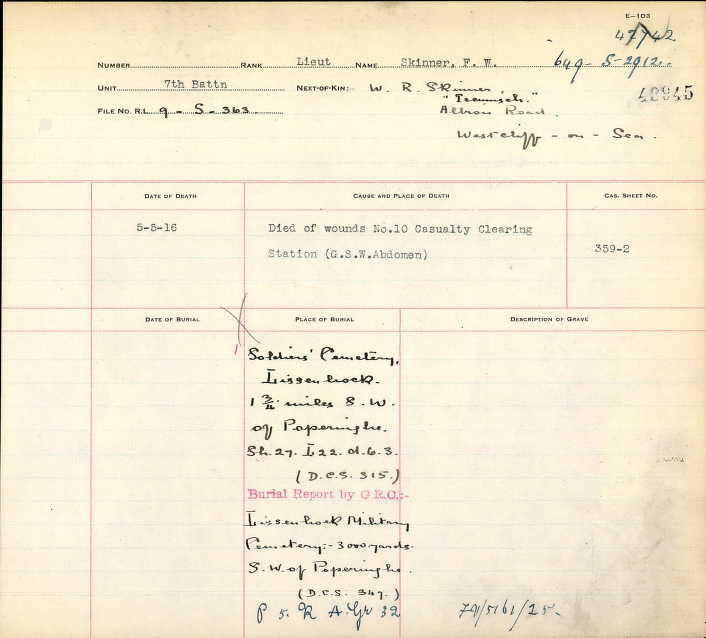 E-103
47742
NUMBER RANK Lieut NAME Skinner, F. W. 649-S-2912.
UNIT 7th Battn NEXT-OF-KIN: W. R. Skinner,
"Tecumseh."
FILE NO. R.L. 9 - S - 363 Albion Road.
42945
Westcliff - on - Sea.
DATE OF DEATH CAUSE AND PLACE OF DEATH CAS. SHEET NO.
5-5-16 Died of wounds No.10 Casualty Clearing
Station (G.S.W.Abdomen) 359-2
DATE OF BURIAL PLACE OF BURIAL DESCRIPTION OF GRAVE
Soldiers' Cemetery,
Lissenhoek.
1 3/4 miles S.W.
of Poperinghe.
Sh.27. L22.d.6.3.
(D.C.S. 315.)
Burial Report by G.R.C.:-
Lissenhoek Military
Cemetery:- 3000 yards.
S.W. of Poperinghe.
(D.C.S. 347.)
P 5. R A. Gr 32 79/5161/25-